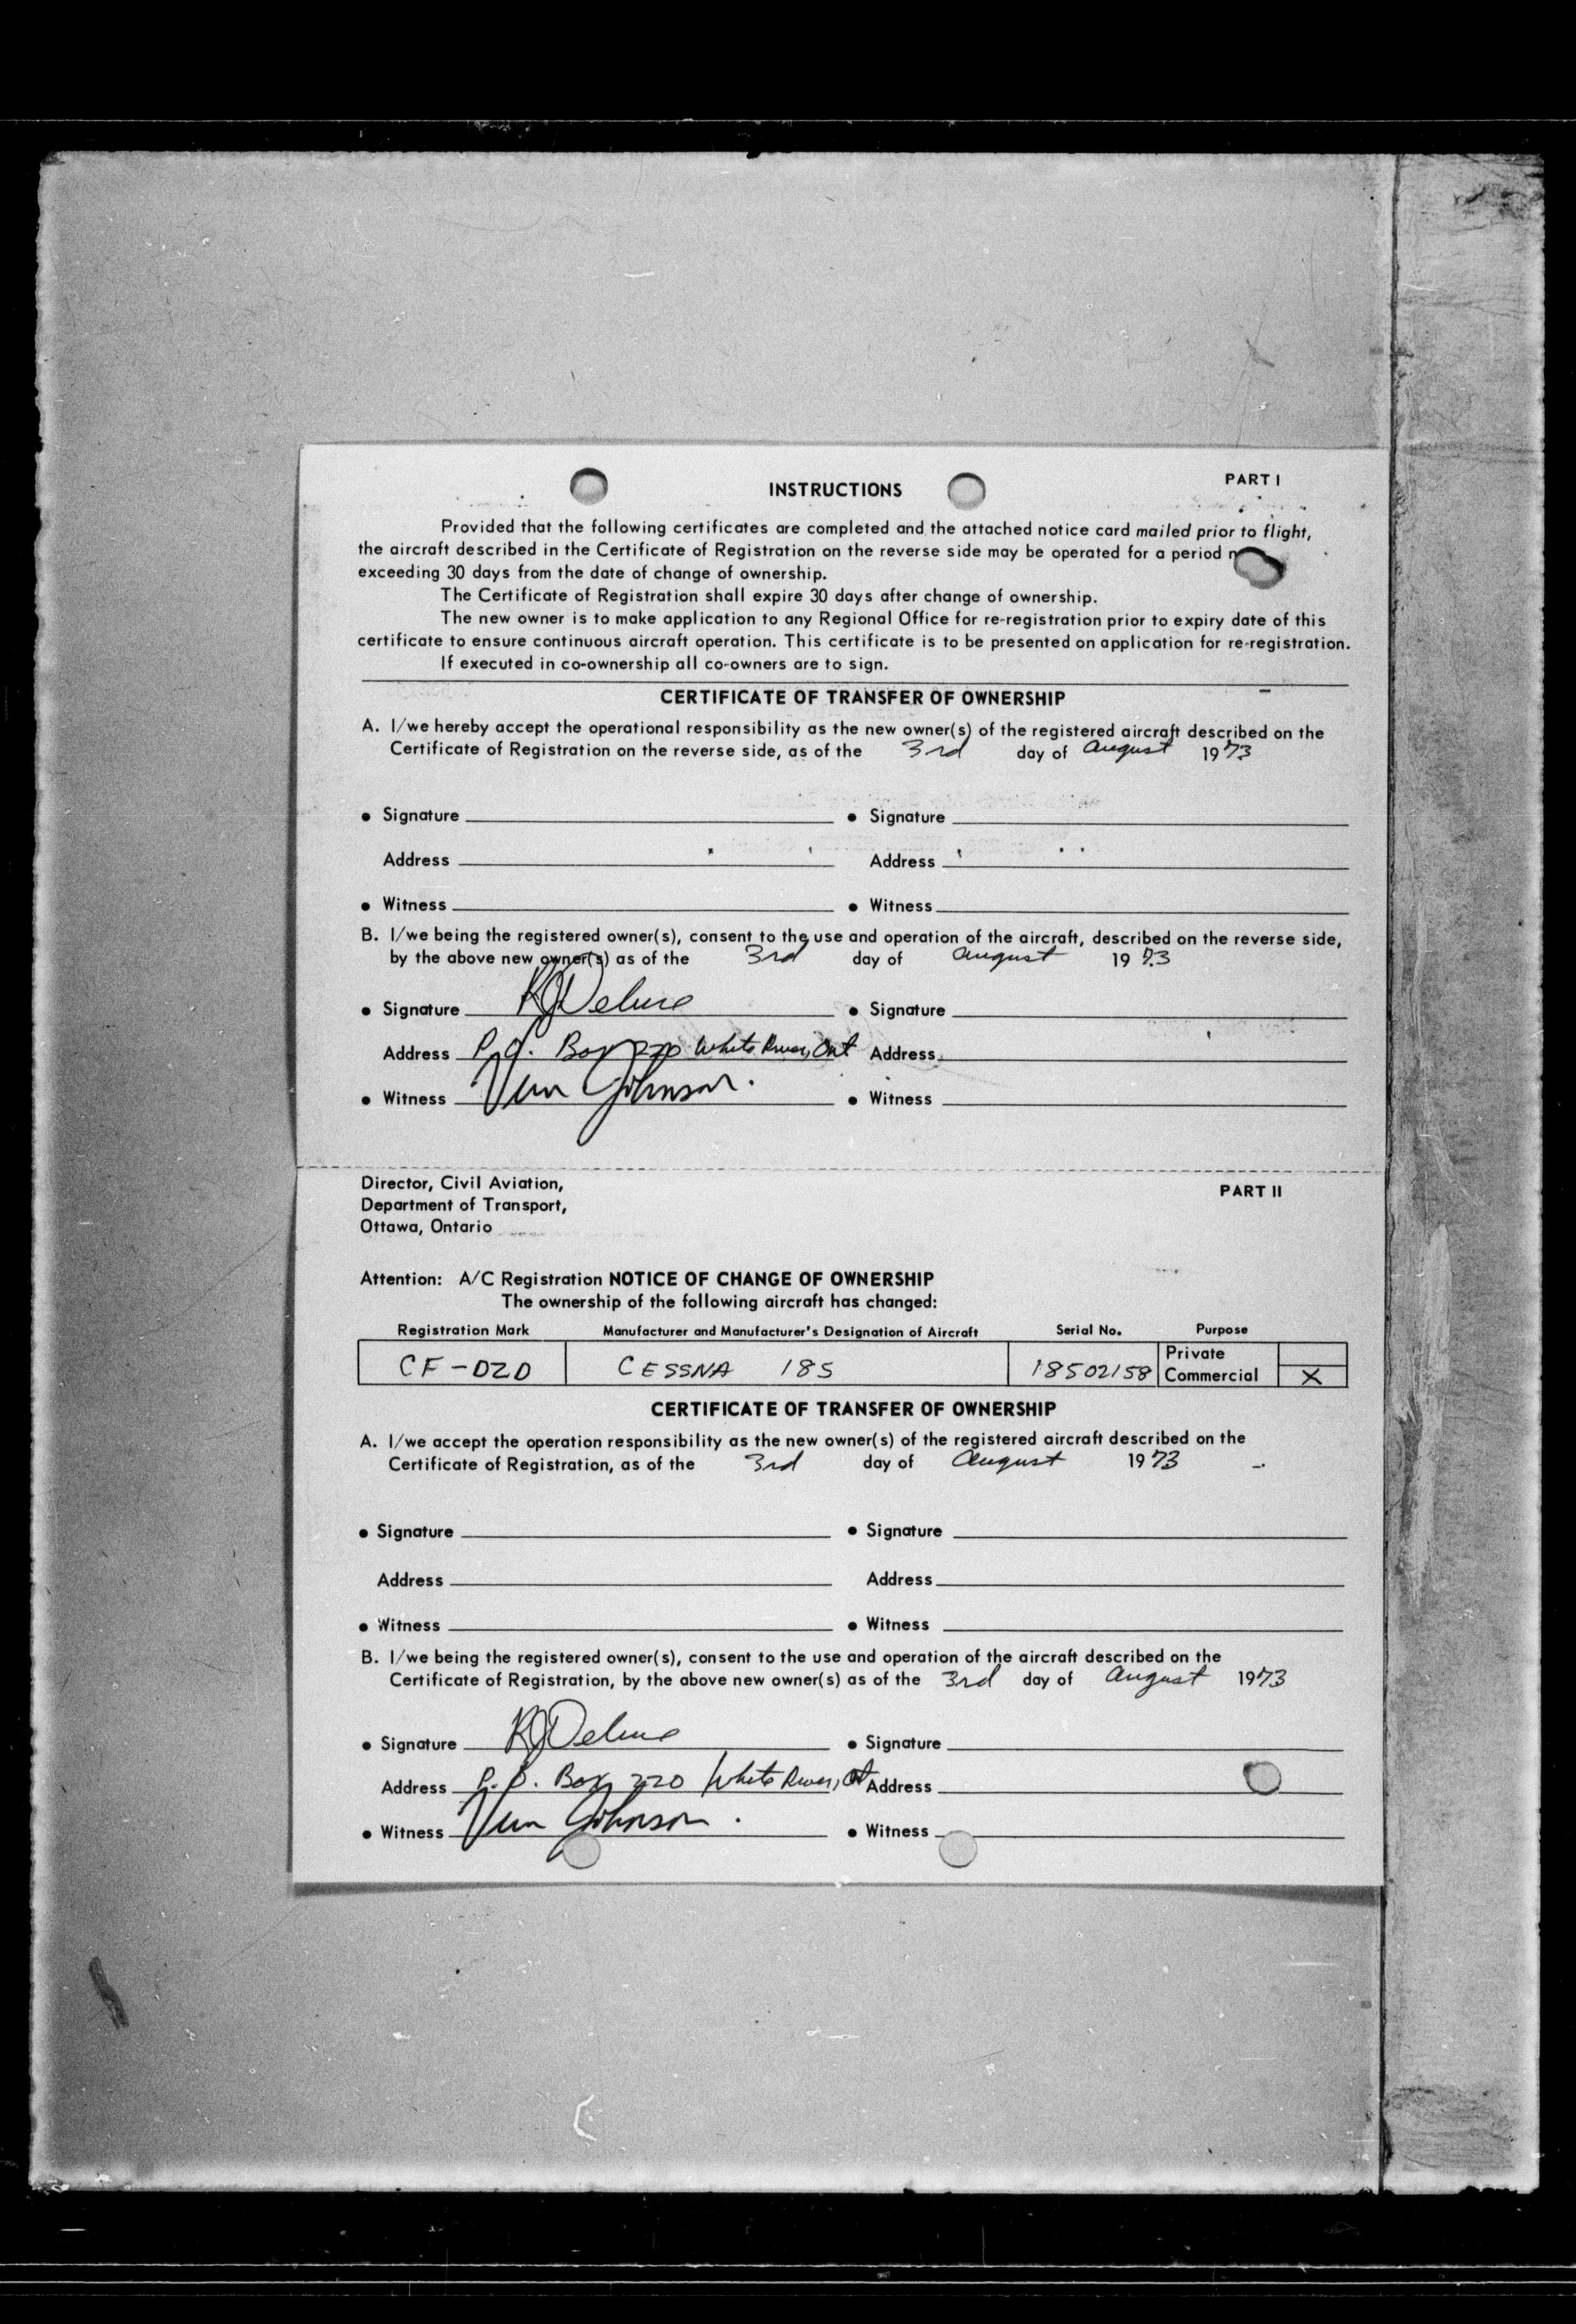 INSTRUCTIONS
PART I
Provided that the following certificates are completed and the attached notice card mailed prior to flight,
the aircraft described in the Certificate of Registration on the reverse side may be operated for a period
exceeding 30 days from the date of change of ownership.
The Certificate of Registration shall expire 30 days after change of ownership.
The new owner is to make application to any Regional Office for re-registration prior to expiry date of this
certificate to ensure continuous aircraft operation. This certificate is to be presented on application for re-registration.
If executed in co-ownership all co-owners are to sign.
CERTIFICATE OF TRANSFER OF OWNERSHIP
A. I/we hereby accept the operational responsibility as the new owner(s) of the registered aircraft described on the
Certificate of Registration on the reverse side, as of the 3rd day of August 1973
• Signature • Signature
Address Address
• Witness • Witness
B. I/we being the registered owner(s), consent to the use and operation of the aircraft, described on the reverse side,
by the above new owner(s) as of the 3rd day of August 1973
• Signature • Signature
Address P.O. Box 220 White River, Ont Address
• Witness Vern Johnson. • Witness
Director, Civil Aviation,
PART II
Department of Transport,
Ottawa, Ontario
Attention: A/C Registration NOTICE OF CHANGE OF OWNERSHIP
The ownership of the following aircraft has changed:
Registration Mark Manufacturer and Manufacturer's Designation of Aircraft Serial No. Purpose
CF-DZD CESSNA 185 18502158 Private
Commercial X
CERTIFICATE OF TRANSFER OF OWNERSHIP
A. I/we accept the operation responsibility as the new owner(s) of the registered aircraft described on the
Certificate of Registration, as of the 3rd day of August 1973
• Signature • Signature
Address Address
• Witness • Witness
B. I/we being the registered owner(s), consent to the use and operation of the aircraft described on the
Certificate of Registration, by the above new owner(s) as of the 3rd day of August 1973
• Signature • Signature
Address P.O. Box 220 White River, Ot Address
• Witness Vern Johnson. • Witness